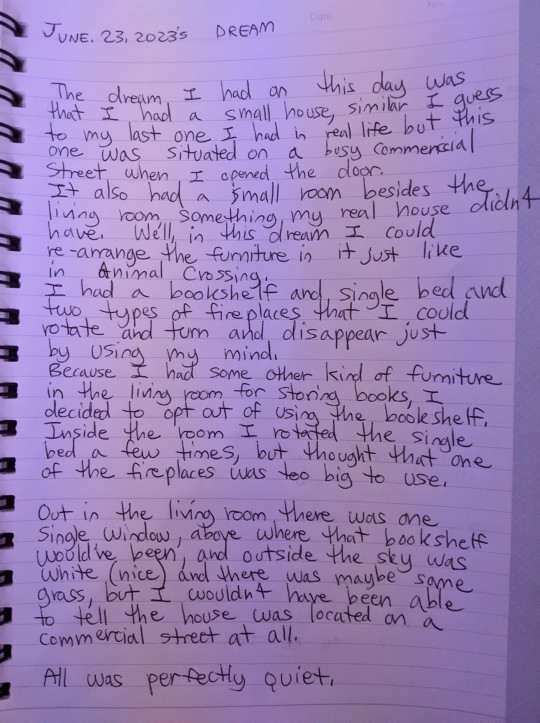 JUNE. 23, 2023's DREAM
The dream I had on this day was
that I had a small house, similar I guess
to my last one I had in real life but this
one was situated on a busy commercial
street when I opened the door.
It also had a small room besides the
living room, something my real house didn't
have. We'll, in this dream I could
re-arrange the furniture in it just like
in Animal Crossing.
I had a bookshelf and single bed and
two types of fireplaces that I could
rotate and turn and disappear just
by using my mind.
Because I had some other kind of furniture
in the living room for storing books, I
decided to opt out of using the bookshelf.
Inside the room I rotated the single
bed a few times, but thought that one
of the fireplaces was too big to use.
Out in the living room there was one
single window, above where that bookshelf
would've been, and outside the sky was
white (nice) and there was maybe some
grass, but I wouldn't have been able
to tell the house was located on a
commercial street at all.
All was perfectly quiet.